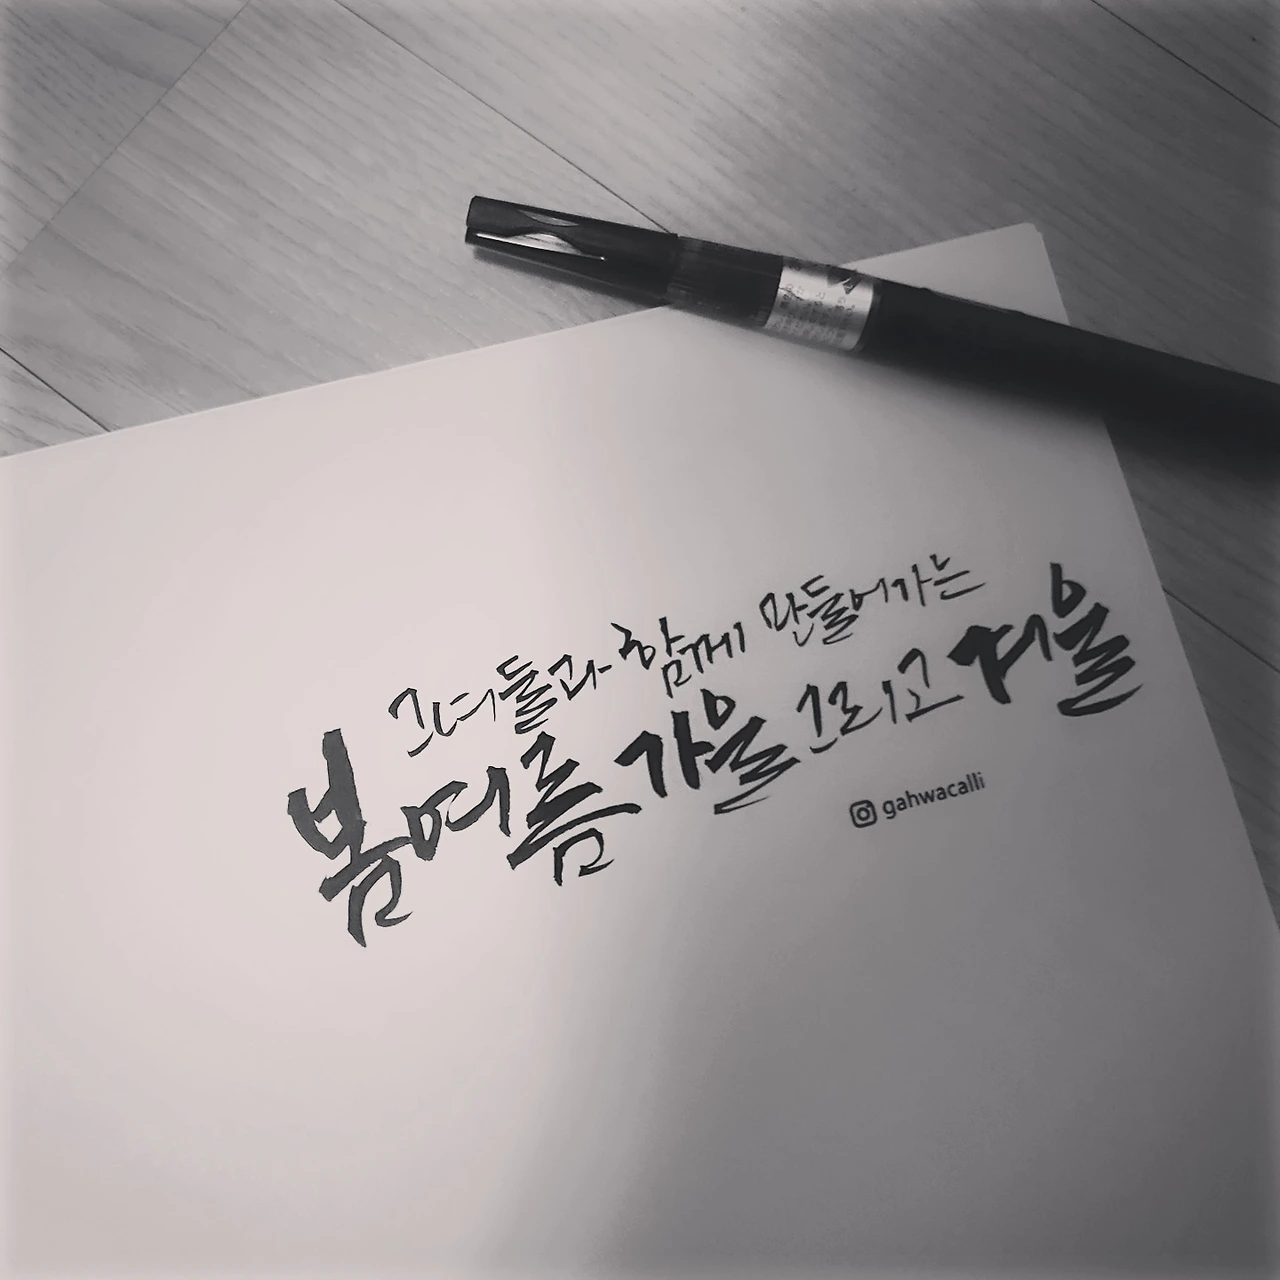 그녀들과 함께 만들어가는
봄여름가을 그리고 겨울
gahwacalli